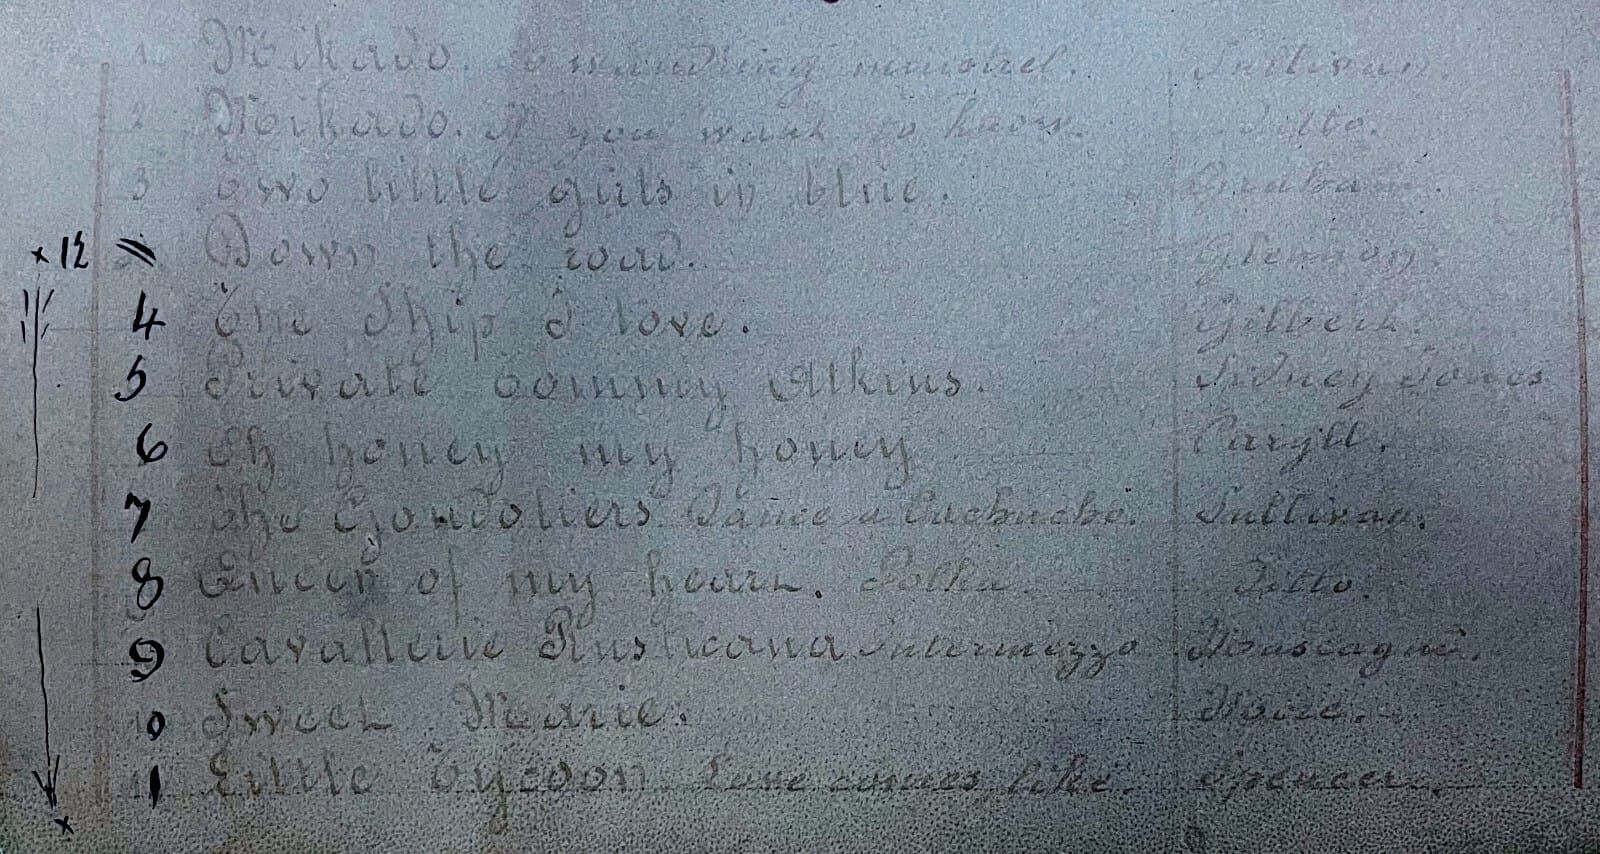 1 Mikado. A wand'ring minstrel. Sullivan.
2 Mikado. If you want to know. Ditto.
3 Two little girls in blue. Graham.
x 12 Down the road. Gleason.
4 The Ship I love. Gilbert.
5 Private Tommy Atkins. Sidney Jones
6 Oh honey my honey Caryll.
7 The Gondoliers. Dance a Cachucha. Sullivan.
8 Queen of my heart. Polka. Ditto.
9 Cavallerie Rusticana Intermezzo Mascagni.
10 Sweet Marie. Moore.
11 Little Tycoon Love comes like. Spencer.
x